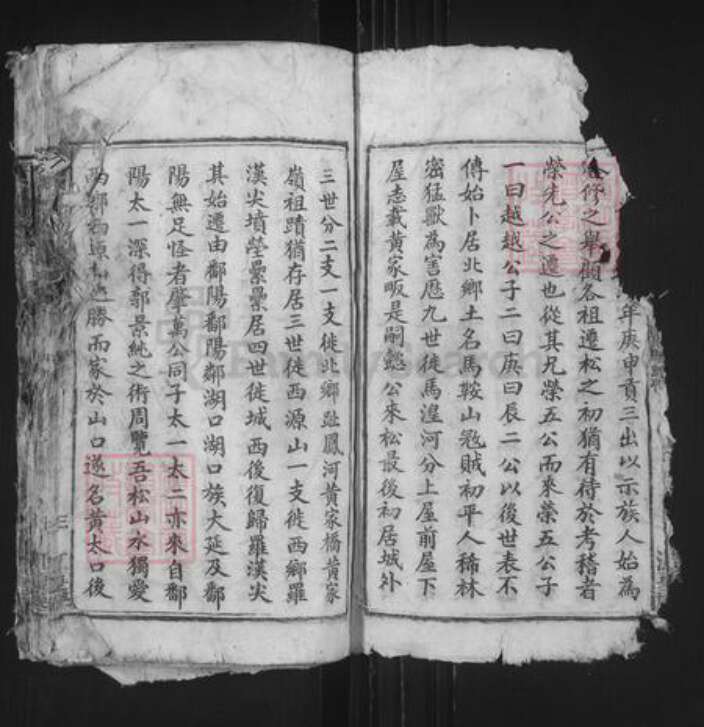 年庚申貢三出以示族人始為
修之舉顧各祖遷松之初猶有待於考稽者
榮先公之遷也從其兄榮五公而來榮五公子
一曰越越公子二曰庚曰辰二公以後世表不
傳始卜居北鄉土名馬鞍山寇賊初平人稀林
密猛獸為害歷九世徙馬湟河分上屋前屋下
屋志載黃家畈是嗣懿公來松最後初居城外
三世分二支一支徙北鄉趾鳳河黃家橋黃家
嶺祖蹟猶存居三世徙西源山一支徙西鄉羅
漢尖墳塋纍纍居四世徙城西後復歸羅漢尖
其始遷由鄱陽鄱陽鄰湖口湖口族大延及鄱
陽無足怪者肇萬公同子太一太二亦來自鄱
陽太一深得郭景純之術周覽吾松山水獨愛
西鄉勝而家於山口遂名黃太口後
FamilySearch